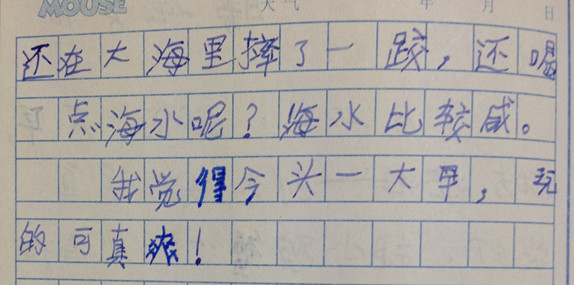 MOUSE 天气 年 月 日
还在大海里摔了一跤，还喝
点海水呢？海水比较咸。
我觉得今头一大早，玩
的可真爽！